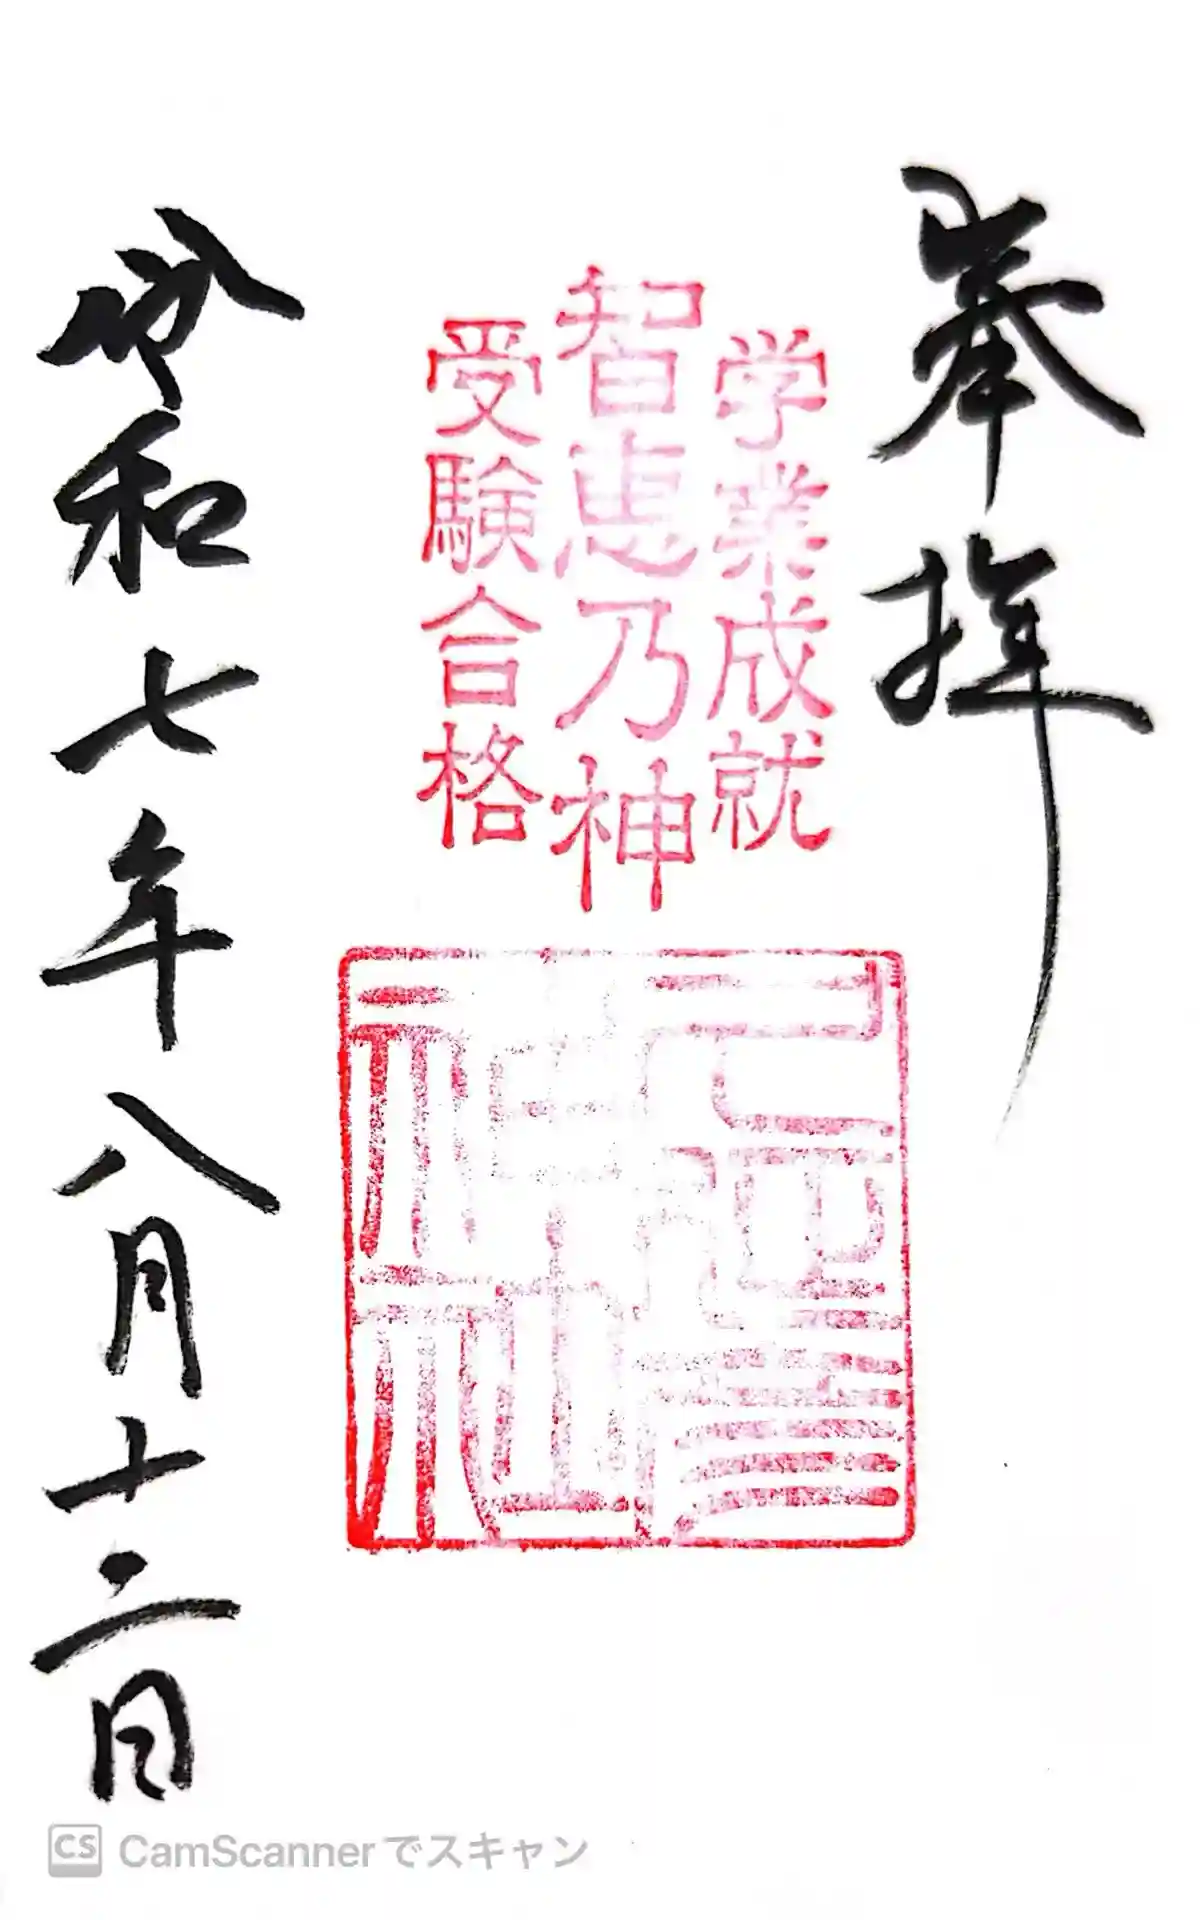 奉拝
学業成就
智恵乃神
受験合格
令和七年八月十二日
CS CamScannerでスキャン